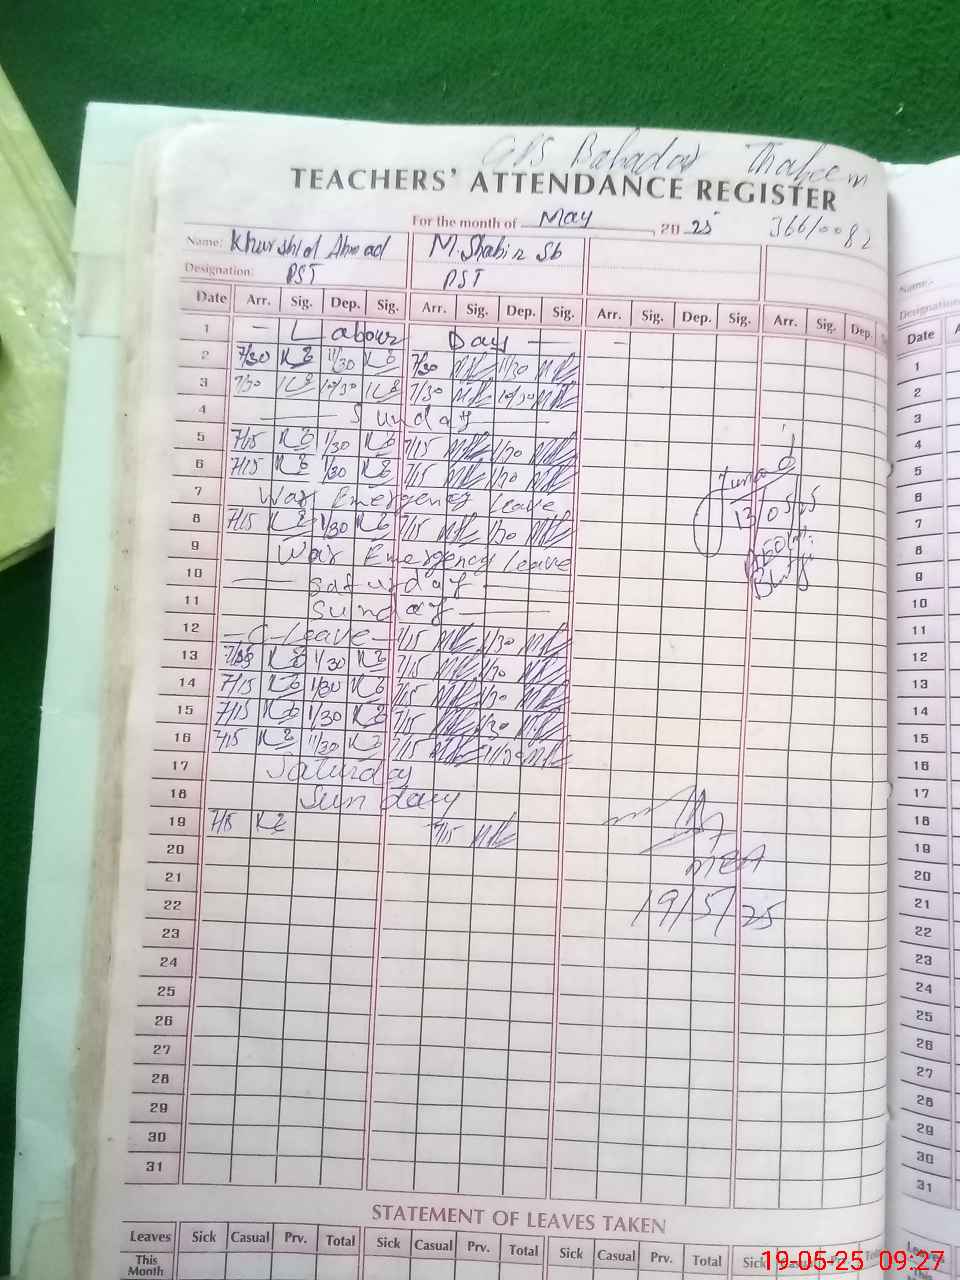 GPS Bahadar Thaheem
TEACHERS' ATTENDANCE REGISTER
For the month of May, 20 25
36610082
Name: Khurshid Ahmad M. Shabir Sb
Designation: PST PST
Date Arr. Sig. Dep. Sig. Arr. Sig. Dep. Sig. Arr. Sig. Dep. Sig. Arr. Sig. Dep.
1 — Labour Day —
2 7/30 11/30 7/30 11/30
3 7/30 10/30 7/30 10/30
4 — Sunday —
5 7/15 1/30 7/15 1/30
6 7/15 1/30 7/15 1/30
7 War Emergency Leave
8 7/15 1/30 7/15 1/30
9 War Emergency Leave
10 — Saturday —
11 — Sunday —
12 — C-Leave — 7/15 1/30
13 1/30 7/15 1/30
14 7/15 1/30 7/15 1/30
15 7/15 1/30 7/15 1/30
16 7/15 11/30 7/15 11/30
17 Saturday
18 Sunday
19 7/15 7/15
20
21
22
23
24
25
26
27
28
29
30
31
13/05/25
MEA
19/5/25
STATEMENT OF LEAVES TAKEN
Leaves Sick Casual Prv. Total Sick Casual Prv. Total Sick Casual Prv. Total Sick
This Month
Name:-
Designation
Date
1
2
3
4
5
6
7
8
9
10
11
12
13
14
15
16
17
18
19
20
21
22
23
24
25
26
27
28
29
30
31
19-05-25 09:27